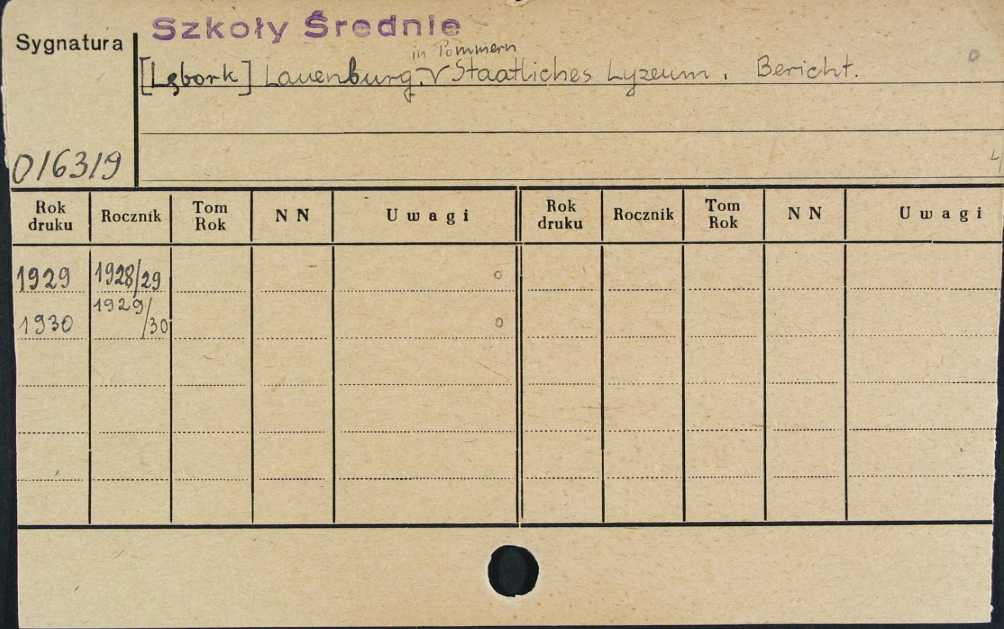 Szkoły Średnie
Sygnatura
in Pommern
[Lębork] Lauenburg. Staatliches Lyzeum. Bericht.
0/63/9
Rok druku Rocznik Tom Rok NN Uwagi Rok druku Rocznik Tom Rok NN Uwagi
1929 1928/29 o
1930 1929/30 o